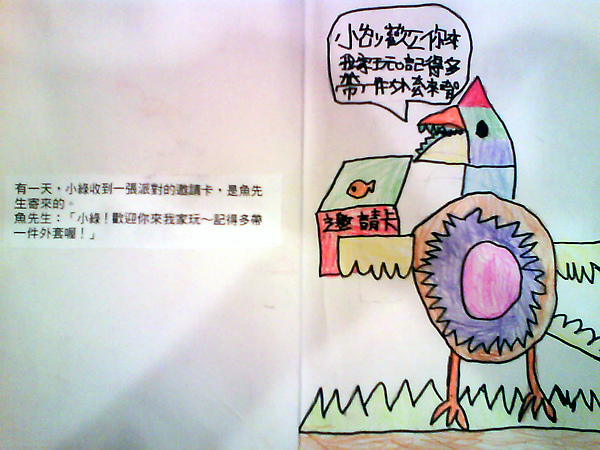 有一天，小綠收到一張派對的邀請卡，是魚先
生寄來的。
魚先生：「小綠！歡迎你來我家玩～記得多帶
一件外套喔！」
小綠歡迎你來
我家玩。記得多
帶一件外套來喔。
邀請卡